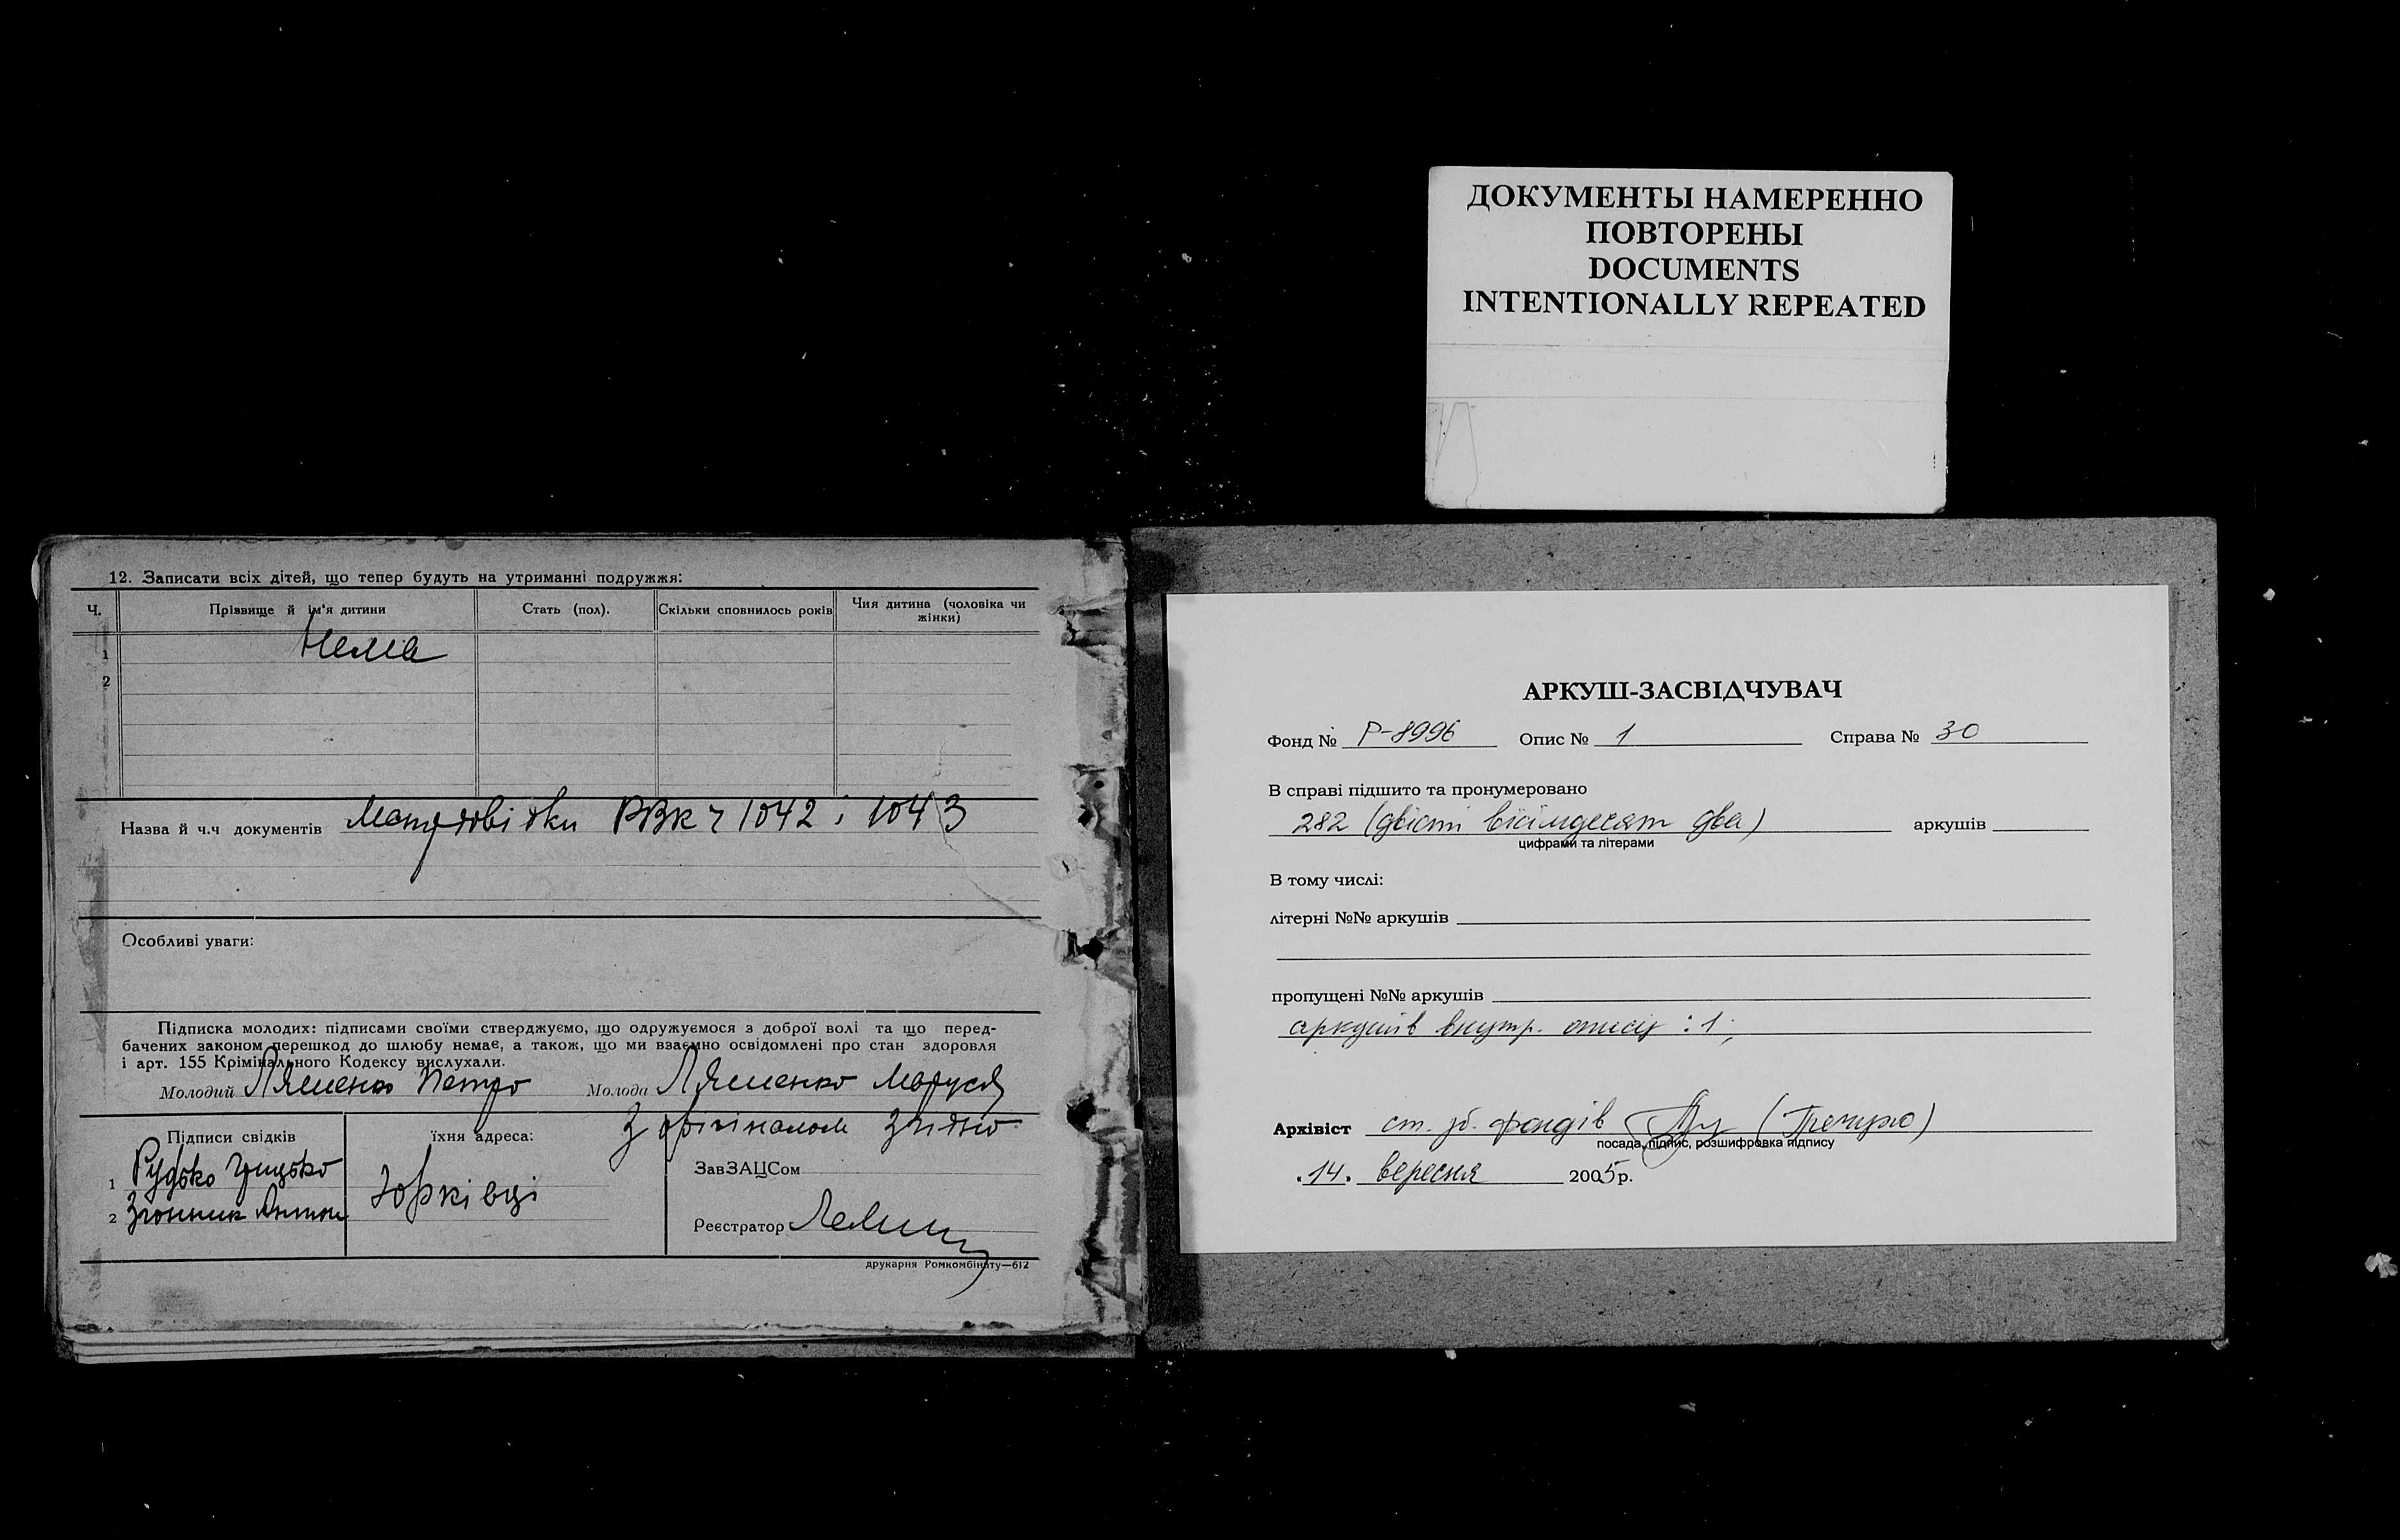 ДОКУМЕНТЫ НАМЕРЕННО
ПОВТОРЕНЫ
DOCUMENTS
INTENTIONALLY REPEATED
12. Записати всіх дітей, що тепер будуть на утриманні подружжя:
Ч. Прізвище й ім'я дитини Стать (пол). Скільки сповнилось років Чия дитина (чоловіка чи жінки)
1 Нема
2
Назва й ч.ч документів РВК ч 1042 і 1043
Особливі уваги:
Підписка молодих: підписами своїми стверджуємо, що одружуємося з доброї волі та що перед-
бачених законом перешкод до шлюбу немає, а також, що ми взаємно освідомлені про стан здоровля
і арт. 155 Крімінального Кодексу вислухали.
Молодий Ляшенко Петро Молода Ляшенко Маруся
З орігіналом згідно
Підписи свідків їхня адреса:
ЗавЗАЦСом
1 Рудько Грицько
Юрківці
2 Згонник Антон
Реєстратор
друкарня Ромкомбінату—612
АРКУШ-ЗАСВІДЧУВАЧ
Фонд № Р-8996 Опис № 1 Справа № 30
В справі підшито та пронумеровано
282 (двісті вісімдесят два) аркушів
цифрами та літерами
В тому числі:
літерні №№ аркушів
пропущені №№ аркушів
аркушів внутр. опису : 1;
Архівіст ст. зб. фондів
посада, підпис, розшифровка підпису
"14" вересня 2005 р.